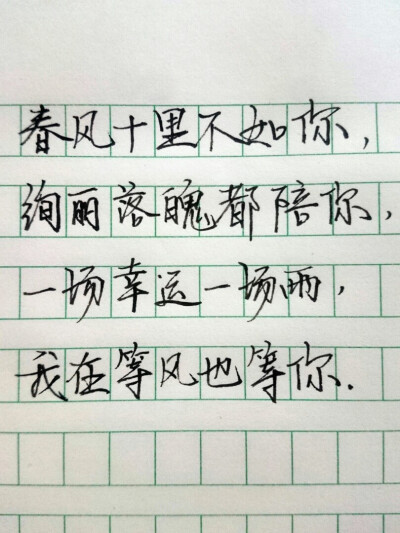 春风十里不如你，
绚丽落魄都陪你，
一场幸运一场雨，
我在等风也等你.